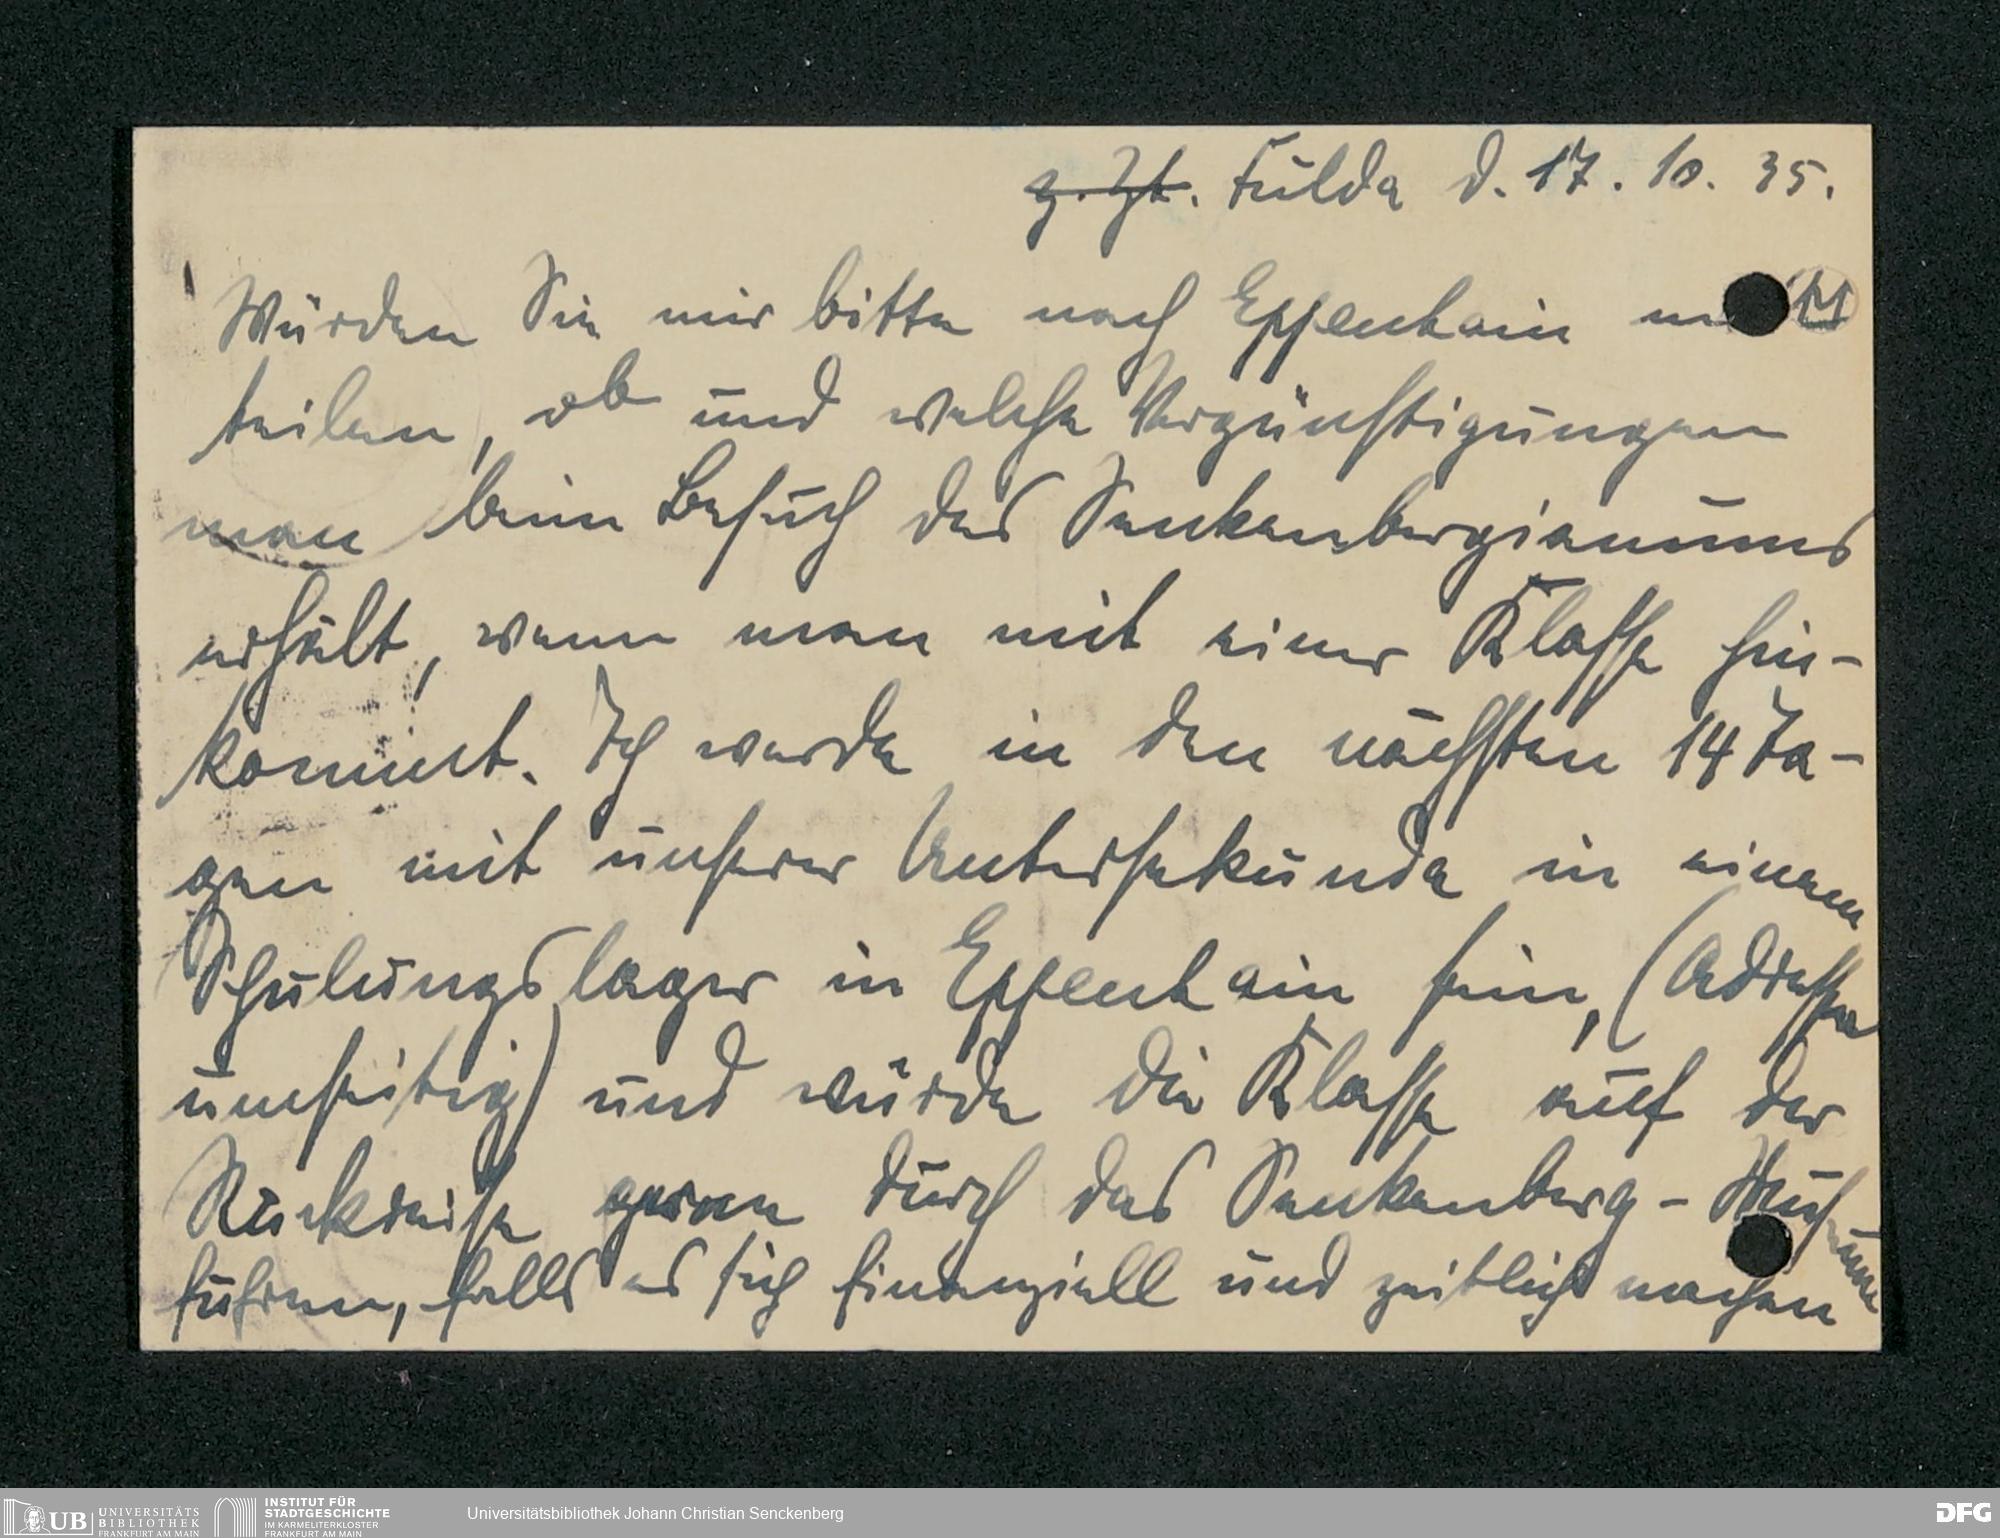 z. Zt. Fulda d. 17. 10. 35.
Würden Sie mir bitte nach Eppenhain mit
teilen, ob und welche Vergünstigungen
man beim Besuch des Senkenbergianums
erhält, wenn man mit einer Klasse hin-
kommt. Ich werde in den nächsten 14 Ta-
gen mit unserer Untersekunda in einem
Schulungslager in Eppenhain sein, (Adresse
umseitig) und würde die Klasse auf der
Rückreise gerne durch das Senkenberg-Museum
führen, falls es sich finanziell und zeitlich machen
UB UNIVERSITÄTS
BIBLIOTHEK
FRANKFURT AM MAIN
INSTITUT FÜR
STADTGESCHICHTE
IM KARMELITERKLOSTER
FRANKFURT AM MAIN
Universitätsbibliothek Johann Christian Senckenberg
DFG